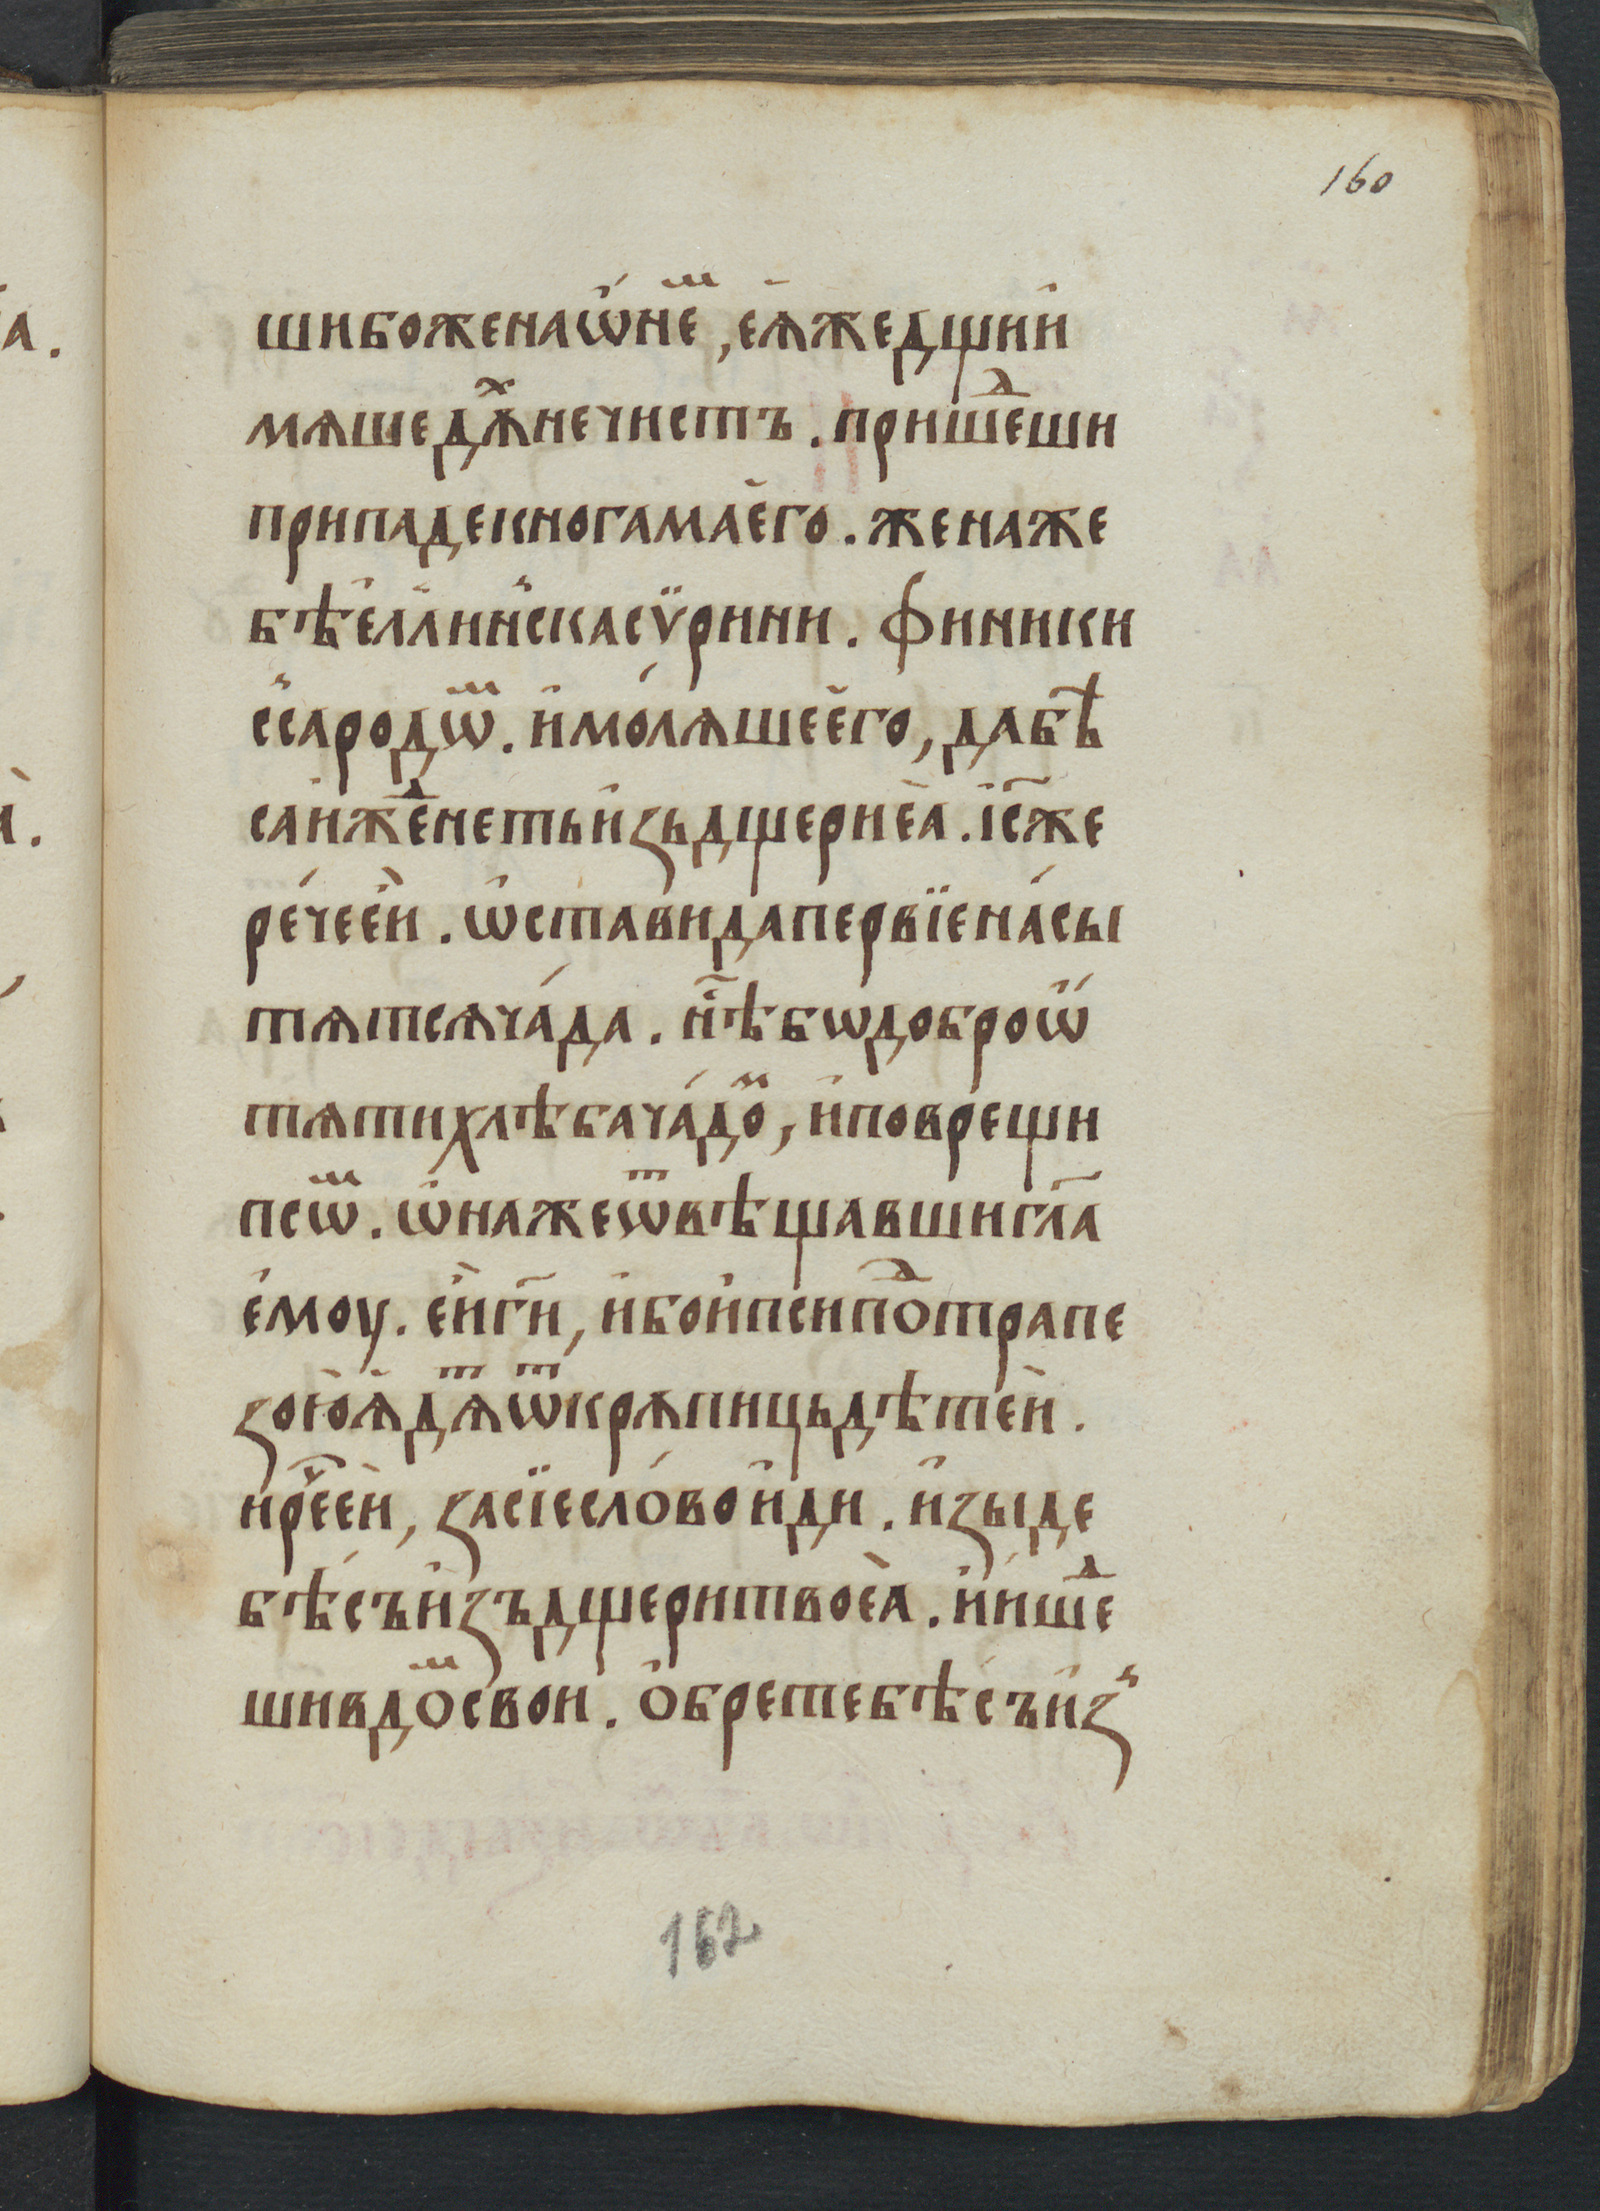 160
шибоженаѡ҆не̑ⷨ, еѧ҆жедщиѝ
мѧшедх҃ънечистъ. пришеⷣши
припадекногамаего̀. женаже
бѣе҆ллин̾скасѵ̈рини. финики
с̾сародѡⷨ. и҆мо́лѧшеего̀, дабѣ
саи҆жⷣенетьи҆зьдщериеѧ̀. і҆с҃же
ре́чеей̀. ѡ҆ставидапервїена́сы
тѧтсѧча́да. нн҃ѣбѡдоброѡ҆
тѧтихлѣбача́доⷨ, и҆поврещи
псѡⷨ. ѡ҆нажеѿвѣщавшигл҃а
е҆моу. ей̀гн҃и, и҆бои҆псипоⷣтрапе
зоюꙗ҆дѧⷮѿкрѧпицьдѣтей̀.
иреⷱ҇ей̀, засїесло́вои҆ди. и҆зыде
бѣ́съи҆зъдщеритвоеѧ̀. и҆и́шеⷣ
шивдоⷨсвои. ѻ҆бретебѣ́съи҆з̾
162